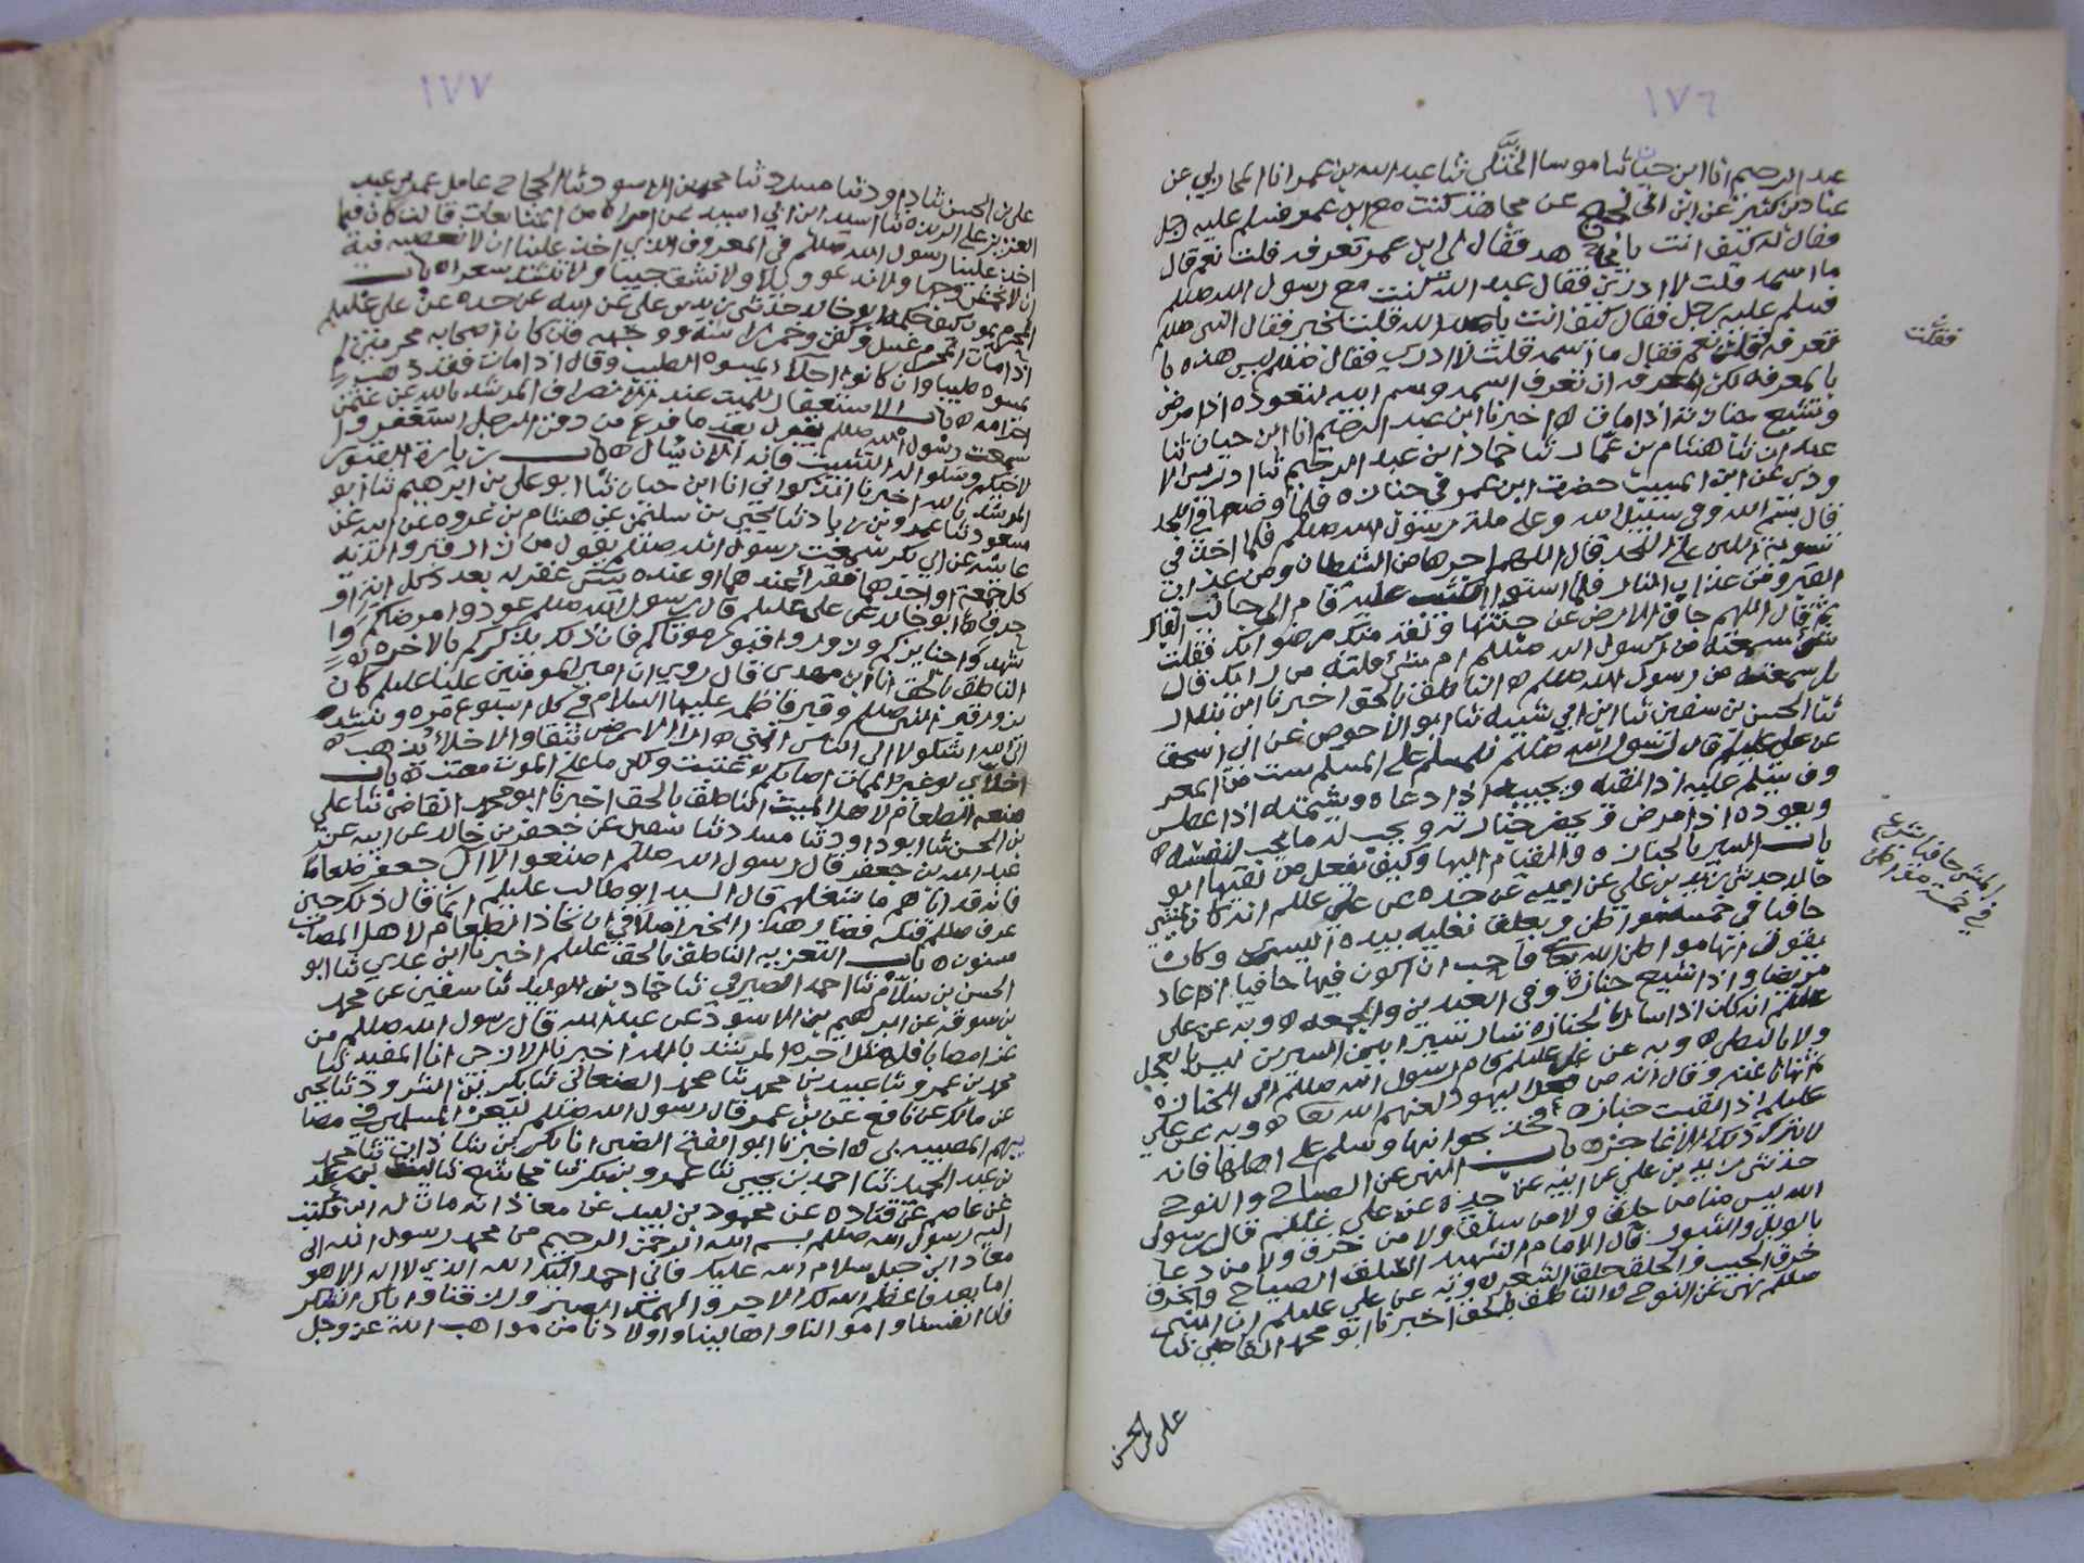 ١٧٦
عبد الرحيم انا ابن حيان ثنا موسا الختلي ثنا عبد الله بن عمر انا المحاربي عن
عباد بن كثير عن ابن ابي نجيح عن مجاهد كنت مع ابن عمر فسلم عليه رجل
فقال له كيف انت يا فقال لي ابن عمر تعرفه قلت نعم قال
ما اسمه قلت لا ادري فقال عبد الله كنت مع رسول الله صللم
فسلم عليه رجل فقال كيف انت يا عبد الله قلت بخير فقال النبي صللم
تعرفه فقلت نعم فقال ما اسمه قلت لا ادري فقال صللم ليس هذه با
بالمعرفه لكن المعرفه ان تعرف اسمه واسم ابيه لتعوده اذا مرض
وتشيع جنازته اذا مات ه اخبرنا ابن عبد الرحيم انا ابن حيان ثنا
عبدان ثنا هشام بن عمار ثنا حماد ابن عبد الرحيم ثنا ادريس الا
ودي عن ابن المسيب حضرت ابن عمر في جنازه فلما وضعها في اللحد
قال بسم الله وفي سبيل الله وعلى ملة رسول الله صللم فلما اخذ في
تسوية اللبن على اللحد قال اللهم اجرها من الشيطان ومن عذاب
القبر ومن عذاب النار فلما استوا الكثيب عليه قام الى جانب القبر
ثم قال اللهم جاف الارض عن جثتها ولقنه منك رضوانك فقلت
شي سمعته من رسول الله صللم ام شي قلته من رايك قال
بل سمعته من رسول الله صللم ه الناطق بالحق اخبرنا ابن بندار
ثنا الحسن بن سفين ثنا ابن ابي شيبه ثنا ابو الاحوص عن ابي اسحق
عن علي عليلم قال رسول الله صللم للمسلم على المسلم ست من المعر
وف يسلم عليه اذا لقيه ويجيبه اذا دعاه ويشمته اذا عطس
ويعوده اذا مرض ويحضر جنازته ويحب له ما يحب لنفسه ه
باب السير بالجنازه والقيام اليها وكيف يفعل من لقيها ابو
خالد حدثني زيد بن علي عن ابيه عن جده عن علي عللم انه كان يمشي
حافيا في خمسه مواطن ويعلق نعليه بيده اليسرى وكان
يقول انها مواطن الله تعالى فاحب ان اكون فيها حافيا اذا عاد
مريضا واذا شيع جنازة وفي العيدين والجمعه ه وبه عن علي
عللم انه كان اذا سار بالجنازه سار سيرا بين السيرين ليس بالعجل
ولا بالبطي ه وبه عن علي عليلم قام رسول الله صللم الى الجنازه
ثم نهانا عنه وقال انه من فعل اليهود لعنهم الله تعالى ه وبه عن علي
عليلم اذا لقيت جنازه فخذ بجوانبها وسلم على اهلها فانه
لا يترك ذلك الا عاجز ه باب النهي عن الصياح والنوح
حدثني زيد بن علي عن ابيه عن جده عن علي عللم قال رسول
الله ليس منا من حلق ولا من سلق ولا من خرق ولا من دعا
بالويل والثبور قال الامام الشهيد السلق الصياح والخرق
خرق الجيب والحلق حلق الشعر ه وبه عن علي عليلم ان النبي
صللم نهى عن النوح ه الناطق بالحق اخبرنا ابو محمد القاضي ثنا
علي بن الحسن
فقلت
المشي حافيا شرع
في خمسة مواطن
١٧٧
علي بن الحسن ثنا ابو داود ثنا مسدد ثنا حميد بن الاسود ثنا الحجاج عامل عمر بن عبد
العزيز على الربذه ثنا اسيد ابن ابي اسيد عن امراه من المبايعات قالت كان فيما
اخذ علينا رسول الله صللم في المعروف الذي اخذ علينا ان لا نعصيه فيه
ان لا نخمش وجها ولا ندعو ويلا ولا نشق جيبا ولا ننشد شعرا ه باب
المحرم يموت كيف حكمه ابو خالد حدثني زيد بن علي عن ابيه عن جده عن علي عليلم
اذا مات المحرم غسل وكفن وخمر راسه ووجهه فان كان اصحابه محرمين لم
يمسوه طيبا وان كانوا احلالا يمسوه الطيب وقال اذا مات فقد ذهب
احرامه ه باب الاستغفار للميت عند انصراف المرشد بالله عن عثمن
سمعت رسول الله صللم يقول بعد ما فرغ من دفن الرجل استغفروا
لاخيكم وسلوا له التثبيت فانه الان يسال ه باب زيارة القبور
المرشد بالله اخبرنا الذكواني انا ابن حيان ثنا ابو علي بن ابرهيم ثنا ابو
مسعود ثنا عمرو بن زياد ثنا يحيى بن سليمن عن هشام بن عروه عن ابيه عن
عائشه عن ابي بكر سمعت رسول الله صللم يقول من زار قبر والديه
كل جمعة او احدهما فقرا عندهما او عنده يس غفر له بعد ذلك اية او
حرف ه ابو خالد عن علي عليلم قال رسول الله صللم عودوا مرضاكم وا
شهدوا جنايزكم وزوروا قبور موتاكم فان ذلك يذكركم بالاخره
الناطق بالحق انا ابن مهدي قال روي ان امير المومنين عليا عليلم كان
يزور قبر النبي صللم وقبر فاطمه عليها السلام في كل اسبوع مره وينشد
الى الله اشكو لا الى الناس انني ه ارا الارض تبقا والاخلا تذهب ه
اخلاي لو غير الممات اصابكم عتبت ولكن ما على الموت معتب ه باب
صنعه الطعام لاهل الميت الناطق بالحق اخبرنا ابو محمد القاضي ثنا علي
بن الحسن ثنا ابو داود ثنا مسدد ثنا سفين عن جعفر بن خالد عن ابيه عن
عبد الله بن جعفر قال رسول الله صللم اصنعوا لال جعفر طعاما
فانه قد اتاهم ما شغلهم قال السيد ابو طالب عليلم انما قال ذلك حين
عرف صللم قتله فصار هذا الخبر اصلا في ان اتخاذ الطعام لاهل المصاب
مسنون ه باب التعزيه الناطق بالحق عليلم اخبرنا ابن عدي ثنا ابو
الحسن بن سلام ثنا احمد الصيرفي ثنا حماد بن الوليد ثنا سفين عن محمد
بن سوقه عن ابرهيم بن الاسود عن عبد الله قال رسول الله صللم من
عزا مصابا فله مثل اجره المرشد بالله اخبرنا الازجي انا المفيد ثنا
محمد بن عمرو ثنا عبيد بن محمد ثنا محمد الصنعاني ثنا بكر بن الشرود ثنا يحيى
عن مالك عن نافع عن ابن عمر قال رسول الله صللم ليعز المسلمين في مصا
يبهم المصيبه بي ه اخبرنا ابو الفتح الضبي انا بكر بن شاذان ثنا محمد
بن عبد الحميد ثنا احمد بن يحيى ثنا عمرو بن بكر ثنا مجاشع ثنا الليث بن سعد
عن عاصم عن قتاده عن محمود بن لبيد عن معاذ انه مات له ابن فكتب
اليه رسول الله صللم بسم الله الرحمن الرحيم من محمد رسول الله الى
معاذ ابن جبل سلام الله عليك فاني احمد اليك الله الذي لا اله الا هو
اما بعد فاعظم الله لك الاجر والهمك الصبر ورزقنا واياك الشكر
فان انفسنا واموالنا واهالينا واولادنا من مواهب الله عز وجل